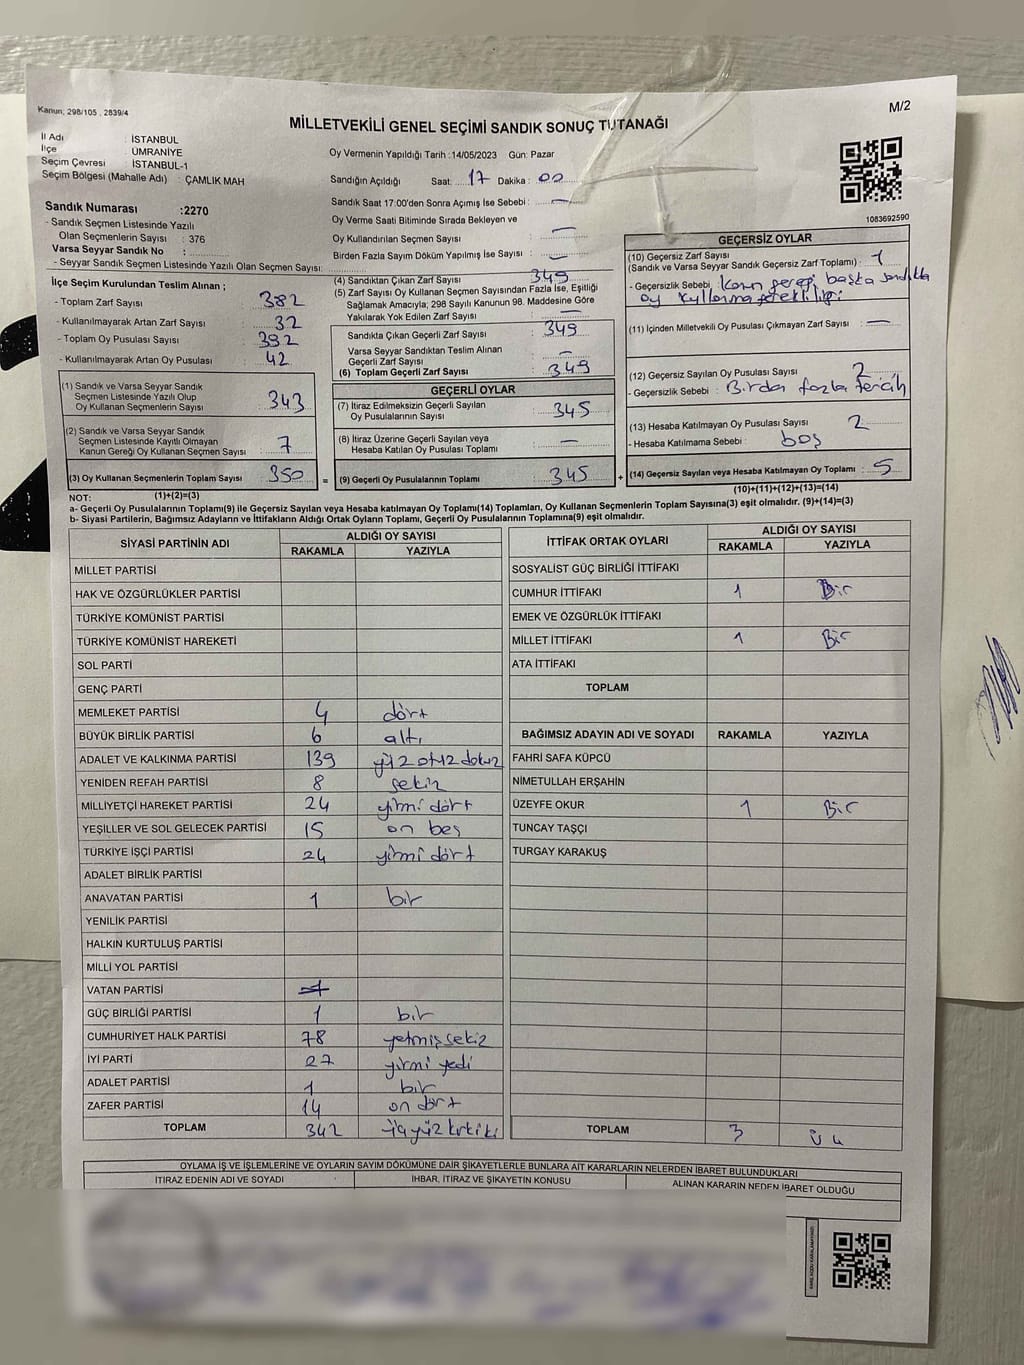 Kanun; 298/105 , 2839/4
M/2
MİLLETVEKİLİ GENEL SEÇİMİ SANDIK SONUÇ TUTANAĞI
İl Adı : İSTANBUL
İlçe : ÜMRANİYE
Seçim Çevresi : İSTANBUL-1
Seçim Bölgesi (Mahalle Adı) : ÇAMLIK MAH
Oy Vermenin Yapıldığı Tarih :14/05/2023 Gün: Pazar
Sandığın Açıldığı Saat: 17 Dakika: 00
Sandık Saat 17:00'den Sonra Açımış İse Sebebi: —
Oy Verme Saati Bitiminde Sırada Bekleyen ve
Oy Kullandırılan Seçmen Sayısı —
Birden Fazla Sayım Döküm Yapılmış İse Sayısı : —
1083692590
Sandık Numarası :2270
- Sandık Seçmen Listesinde Yazılı
Olan Seçmenlerin Sayısı : 376
Varsa Seyyar Sandık No :
- Seyyar Sandık Seçmen Listesinde Yazılı Olan Seçmen Sayısı:
İlçe Seçim Kurulundan Teslim Alınan ;
- Toplam Zarf Sayısı : 382
- Kullanılmayarak Artan Zarf Sayısı : 32
- Toplam Oy Pusulası Sayısı : 392
- Kullanılmayarak Artan Oy Pusulası : 42
(1) Sandık ve Varsa Seyyar Sandık
Seçmen Listesinde Yazılı Olup
Oy Kullanan Seçmenlerin Sayısı : 343
(2) Sandık ve Varsa Seyyar Sandık
Seçmen Listesinde Kayıtlı Olmayan
Kanun Gereği Oy Kullanan Seçmen Sayısı : 7
(3) Oy Kullanan Seçmenlerin Toplam Sayısı : 350
(4) Sandıktan Çıkan Zarf Sayısı : 349
(5) Zarf Sayısı Oy Kullanan Seçmen Sayısından Fazla İse, Eşitliği
Sağlamak Amacıyla; 298 Sayılı Kanunun 98. Maddesine Göre
Yakılarak Yok Edilen Zarf Sayısı : —
Sandıkta Çıkan Geçerli Zarf Sayısı : 349
Varsa Seyyar Sandıktan Teslim Alınan
Geçerli Zarf Sayısı : —
(6) Toplam Geçerli Zarf Sayısı : 349
GEÇERLİ OYLAR
(7) İtiraz Edilmeksizin Geçerli Sayılan
Oy Pusulalarının Sayısı : 345
(8) İtiraz Üzerine Geçerli Sayılan veya
Hesaba Katılan Oy Pusulası Toplamı : —
= (9) Geçerli Oy Pusulalarının Toplamı : 345 +
GEÇERSİZ OYLAR
(10) Geçersiz Zarf Sayısı
(Sandık ve Varsa Seyyar Sandık Geçersiz Zarf Toplamı) : 1
- Geçersizlik Sebebi : Kanun gereği başka sandıkta
oy kullanma gerekliliği
(11) İçinden Milletvekili Oy Pusulası Çıkmayan Zarf Sayısı : —
(12) Geçersiz Sayılan Oy Pusulası Sayısı : 2
- Geçersizlik Sebebi : Birden fazla tercih
(13) Hesaba Katılmayan Oy Pusulası Sayısı : 2
- Hesaba Katılmama Sebebi : boş
(14) Geçersiz Sayılan veya Hesaba Katılmayan Oy Toplamı : 5
NOT: (1)+(2)=(3)
(10)+(11)+(12)+(13)=(14)
a- Geçerli Oy Pusulalarının Toplamı(9) ile Geçersiz Sayılan veya Hesaba katılmayan Oy Toplamı(14) Toplamları, Oy Kullanan Seçmenlerin Toplam Sayısına(3) eşit olmalıdır. (9)+(14)=(3)
b- Siyasi Partilerin, Bağımsız Adayların ve İttifakların Aldığı Ortak Oyların Toplamı, Geçerli Oy Pusulalarının Toplamına(9) eşit olmalıdır.
SİYASİ PARTİNİN ADI
ALDIĞI OY SAYISI
RAKAMLA YAZIYLA
MİLLET PARTİSİ
HAK VE ÖZGÜRLÜKLER PARTİSİ
TÜRKİYE KOMÜNİST PARTİSİ
TÜRKİYE KOMÜNİST HAREKETİ
SOL PARTİ
GENÇ PARTİ
MEMLEKET PARTİSİ 4 dört
BÜYÜK BİRLİK PARTİSİ 6 altı
ADALET VE KALKINMA PARTİSİ 139 yüz otuz dokuz
YENİDEN REFAH PARTİSİ 8 sekiz
MİLLİYETÇİ HAREKET PARTİSİ 24 yirmi dört
YEŞİLLER VE SOL GELECEK PARTİSİ 15 on beş
TÜRKİYE İŞÇİ PARTİSİ 24 yirmi dört
ADALET BİRLİK PARTİSİ
ANAVATAN PARTİSİ 1 bir
YENİLİK PARTİSİ
HALKIN KURTULUŞ PARTİSİ
MİLLİ YOL PARTİSİ
VATAN PARTİSİ
GÜÇ BİRLİĞİ PARTİSİ 1 bir
CUMHURİYET HALK PARTİSİ 78 yetmiş sekiz
İYİ PARTİ 27 yirmi yedi
ADALET PARTİSİ 1 bir
ZAFER PARTİSİ 14 on dört
TOPLAM 342 üçyüz kırk iki
İTTİFAK ORTAK OYLARI
ALDIĞI OY SAYISI
RAKAMLA YAZIYLA
SOSYALİST GÜÇ BİRLİĞİ İTTİFAKI
CUMHUR İTTİFAKI 1 Bir
EMEK VE ÖZGÜRLÜK İTTİFAKI
MİLLET İTTİFAKI 1 Bir
ATA İTTİFAKI
TOPLAM
BAĞIMSIZ ADAYIN ADI VE SOYADI RAKAMLA YAZIYLA
FAHRİ SAFA KÜPCÜ
NİMETULLAH ERŞAHİN
ÜZEYFE OKUR 1 Bir
TUNCAY TAŞÇI
TURGAY KARAKUŞ
TOPLAM 3 üç
OYLAMA İŞ VE İŞLEMLERİNE VE OYLARIN SAYIM DÖKÜMÜNE DAİR ŞİKAYETLERLE BUNLARA AİT KARARLARIN NELERDEN İBARET BULUNDUKLARI
İTİRAZ EDENİN ADI VE SOYADI İHBAR, İTİRAZ VE ŞİKAYETİN KONUSU ALINAN KARARIN NEDEN İBARET OLDUĞU